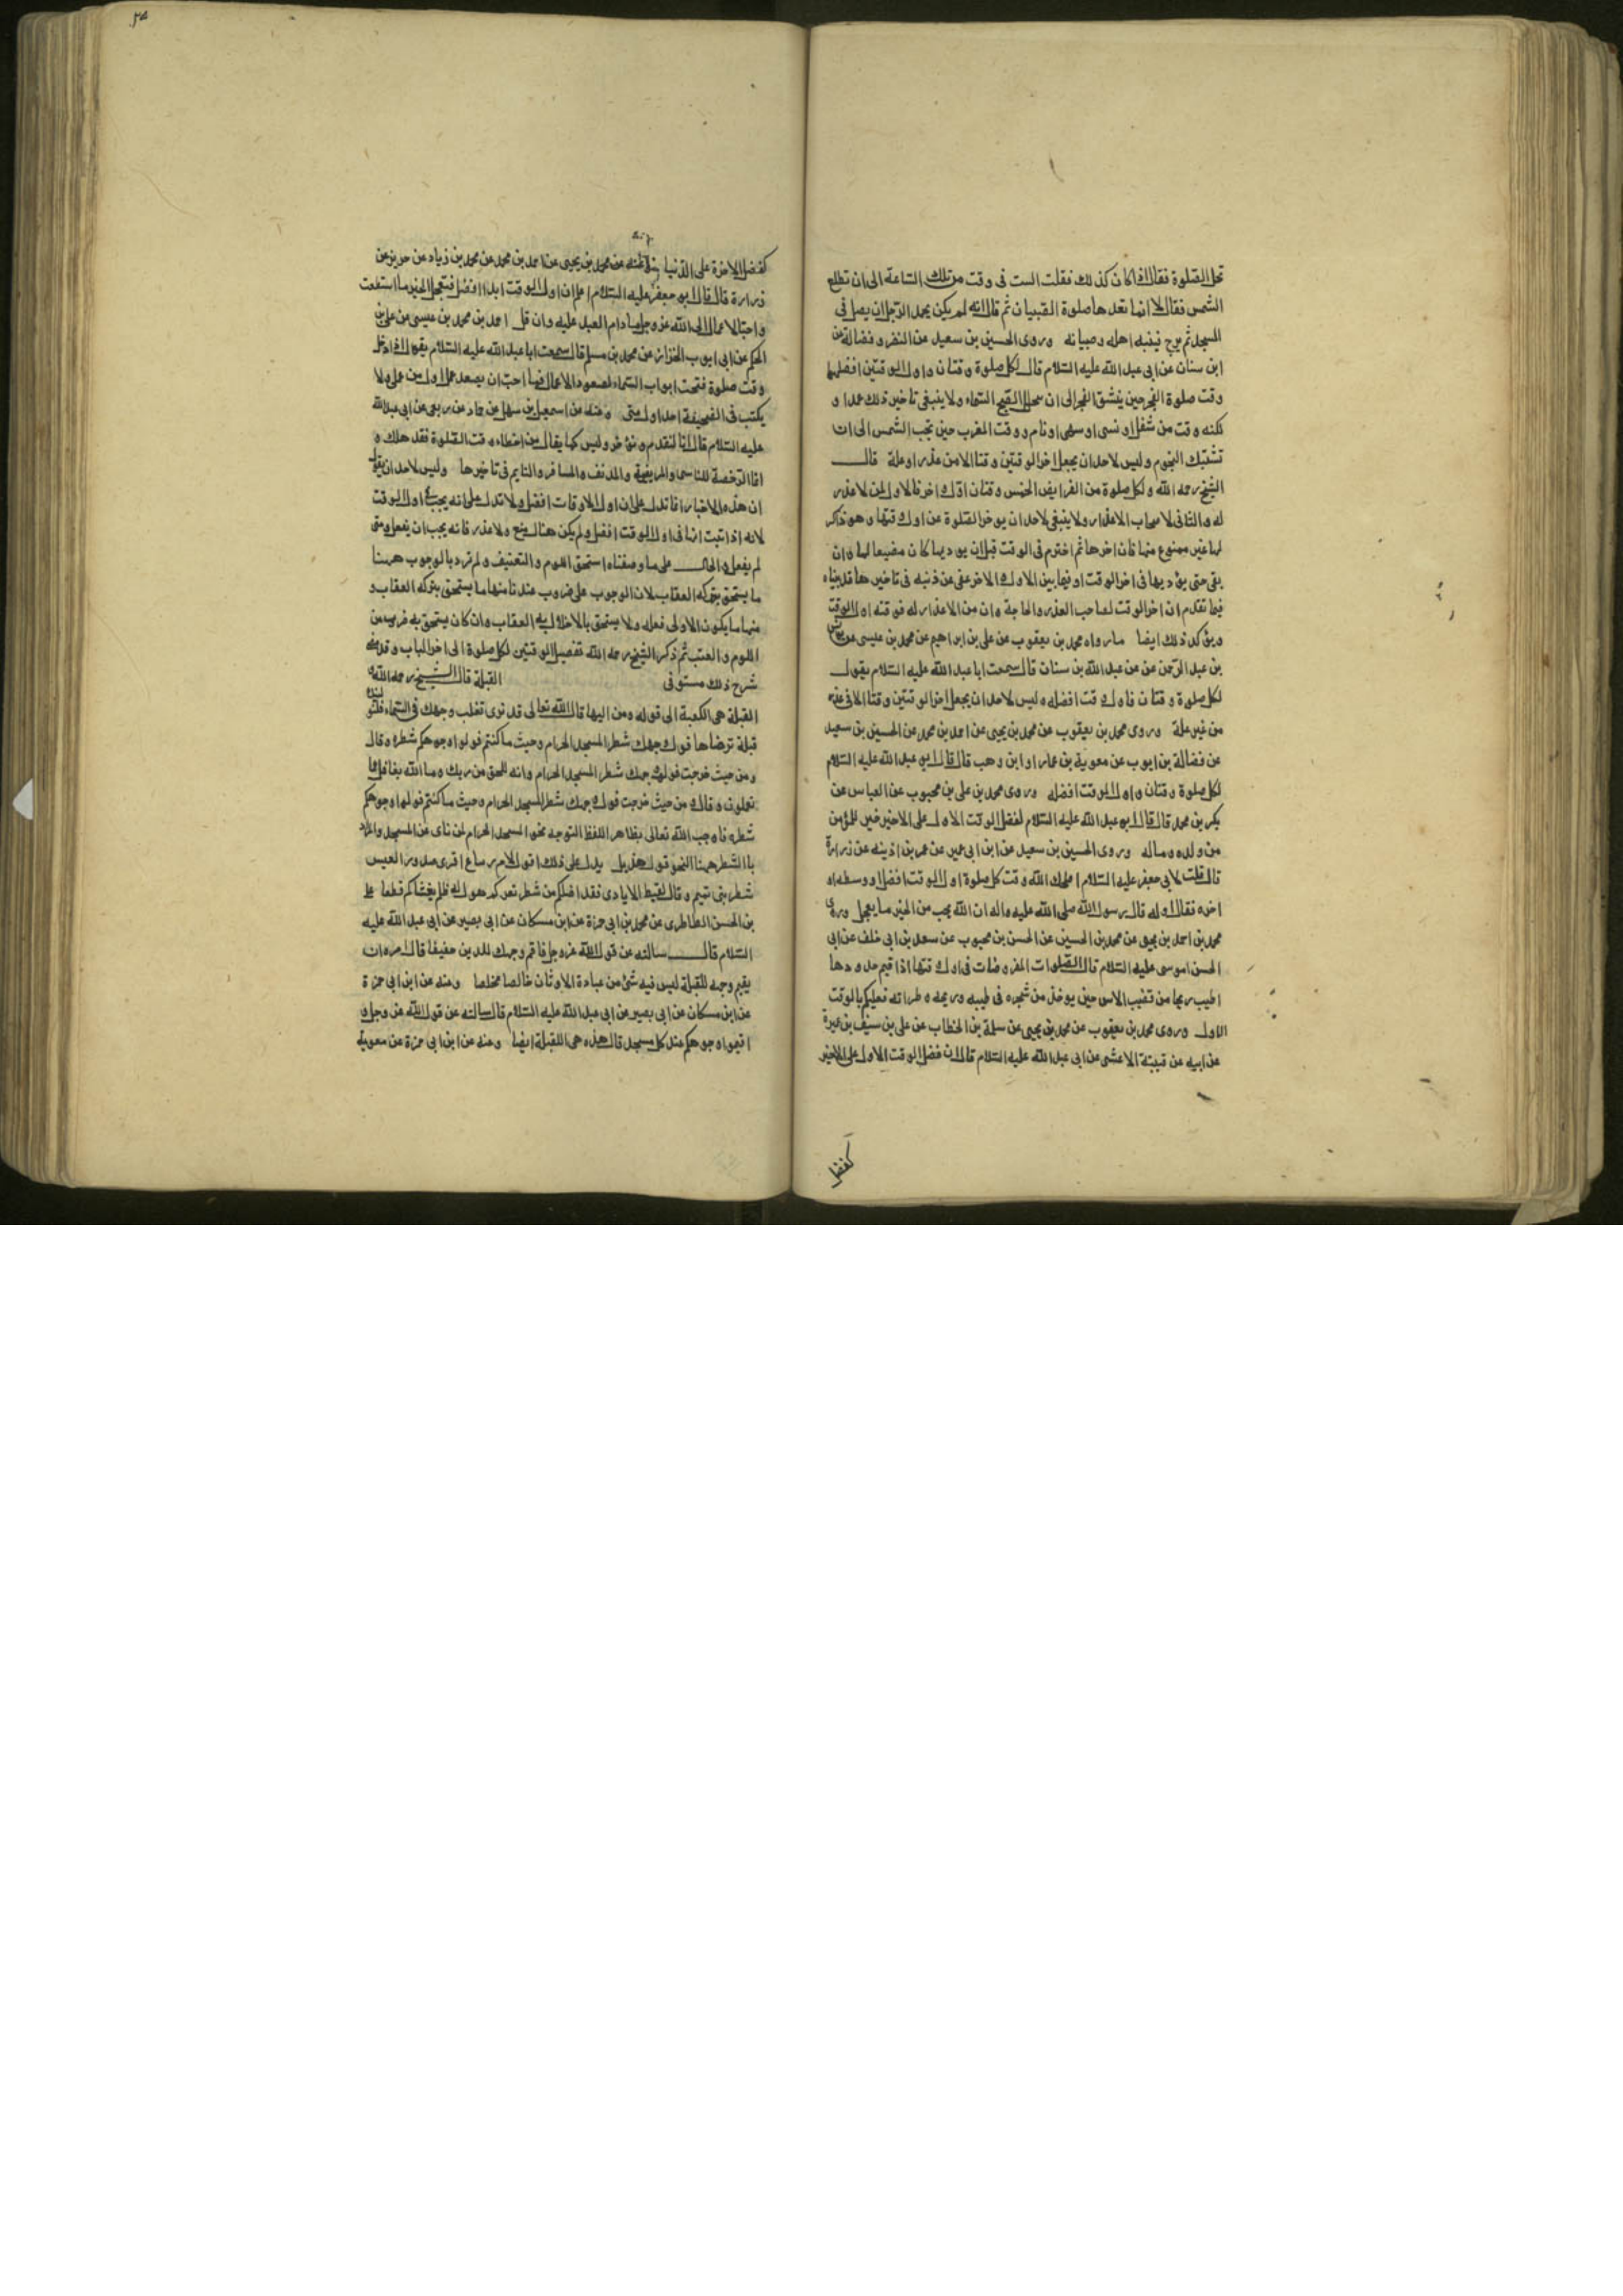 تحل الصلوة فقال اذا كان كذلك فقلت الست فى وقت من تلك الساعة الى ان تطلع
الشمس فقال لا انما نعدها صلوة الصبيان ثم قال انه لم يكن يحمد الرجل ان يصلى فى
المسجد ثم يرجع فينبه اهله وصبيانه وروى الحسين بن سعيد عن النضر وفضالة عن
ابن سنان عن ابى عبد الله عليه السلام قال لكل صلوة وقتان واول الوقتين افضلهما
وقت صلوة الفجر حين ينشق الفجر الى ان يتجلل الصبح السماء ولا ينبغى تاخير ذلك عمدا و
لكنه وقت من شغل او نسى او سهى او نام ووقت المغرب حين تجب الشمس الى ان
تشتبك النجوم وليس لاحد ان يجعل اخر الوقتين وقتا الا من عذر او علة قال
الشيخ رحمه الله ولكل صلوة من الفرايض الخمس وقتان اول واخر فالاول لمن لا عذر
له والثانى لاصحاب الاعذار ولا ينبغى لاحد ان يوخر الصلوة عن اول وقتها وهو ذاكر
لها غير ممنوع منها فان اخرها ثم اخترم فى الوقت قبل ان يوديها كان مضيعا لها وان
بقى حتى يؤديها فى اخر الوقت او فيما بين الاول والاخر عفى عن ذنبه فى تاخيرها قد بيناه
فيما تقدم ان اخر الوقت لصاحب العذر والحاجة وان من لا عذر له فوقته اول الوقت
ويؤكد ذلك ايضا ما رواه محمد بن يعقوب عن على بن ابراهيم عن محمد بن عيسى عن يونس
بن عبد الرحمن عن عبد الله بن سنان قال سمعت ابا عبد الله عليه السلام يقول
لكل صلوة وقتان فاول وقت افضله وليس لاحد ان يجعل اخر الوقتين وقتا الا فى عذر
من غير علة وروى محمد بن يعقوب عن محمد بن يحيى عن احمد بن محمد عن الحسين بن سعيد
عن فضالة بن ايوب عن معوية بن عمار او ابن وهب قال قال ابو عبد الله عليه السلام
لكل صلوة وقتان واول الوقت افضله وروى محمد بن على بن محبوب عن العباس عن
بكر بن محمد قال قال ابو عبد الله عليه السلام لفضل الوقت الاول على الاخير خير للمؤمن
من ولده وماله وروى الحسين بن سعيد عن ابن ابى عمير عن عمر بن اذينه عن زرارة
قال قلت لابى جعفر عليه السلام اصلحك الله وقت كل صلوة اول الوقت افضل او وسطه او
اخره فقال اوله قال رسول الله صلى الله عليه واله ان الله يحب من الخير ما يعجل وروى
محمد بن احمد بن يحيى عن محمد بن الحسين عن الحسن بن محبوب عن سعد بن ابى خلف عن ابى
الحسن موسى عليه السلام قال الصلوات المفروضات فى اول وقتها اذا اقيم حدودها
اطيب ريحا من قضيب الاس حين يوخذ من شجره فى طيبه وريحه وطراوته فعليكم بالوقت
الاول وروى محمد بن يعقوب عن محمد بن يحيى عن سلمة بن الخطاب عن على بن سيف بن عميرة
عن ابيه عن قتيبة الاعشى عن ابى عبد الله عليه السلام قال ان فضل الوقت الاول على الاخير
كفضل
كفضل الاخرة على الدنيا عنه عن محمد بن يحيى عن احمد بن محمد عن محمد بن زياد عن حريز عن
زرارة قال قال ابو جعفر عليه السلام اعلم ان اول الوقت ابدا افضل فتعجل الخير ما استطعت
واحب الاعمال الى الله عز وجل ما دام العبد عليه وان قل احمد بن محمد بن عيسى عن على بن
الحكم عن ابى ايوب الخزاز عن محمد بن مسلم قال سمعت ابا عبد الله عليه السلام يقول اذا دخل
وقت صلوة فتحت ابواب السماء لصعود الاعمال فما احب ان يصعد عمل اول من عملى ولا
يكتب فى الصحيفة احد اول منى وعنه عن اسمعيل بن سهل عن حماد عن ربعى عن ابى عبد الله
عليه السلام قال انا لنقدم ونؤخر وليس كما يقال من اخطاء وقت الصلوة فقد هلك و
انما الرخصة للناسى والمريض والمدنف والمسافر والنايم فى تاخيرها وليس لاحد ان يقول
ان هذه الاخبار انما تدل على ان اول الاوقات افضل ولا تدل على انه يجب فى اول الوقت
لانه اذا ثبت انها فى اول الوقت افضل ولم يكن هناك منع ولا عذر فانه يجب ان يفعل ومتى
لم يفعل والحال على ما وصفناه استحق اللوم والتعنيف ولم نرد بالوجوب ههنا
ما يستحق بتركه العقاب لان الوجوب على ضروب عندنا منها ما يستحق بتركه العقاب و
منها ما يكون الاولى فعله ولا يستحق بالاخلال به العقاب وان كان يستحق به ضرب من
اللوم والعتب ثم ذكر الشيخ رحمه الله تفصيل الوقتين لكل صلوة الى اخر الباب وقد مضى
شرح ذلك مستوفى القبلة قال الشيخ رحمه الله
القبلة هى الكعبة الى قوله ومن اليها قال الله تعالى قد نرى تقلب وجهك فى السماء فلنولينك
قبلة ترضاها فول وجهك شطر المسجد الحرام وحيث ما كنتم فولوا وجوهكم شطره وقال
ومن حيث خرجت فول وجهك شطر المسجد الحرام وانه للحق من ربك وما الله بغافل عما
تعملون وقال ومن حيث خرجت فول وجهك شطر المسجد الحرام وحيث ما كنتم فولوا وجوهكم
شطره فاوجب الله تعالى بظاهر اللفظ التوجه نحو المسجد الحرام لمن نأى عن المسجد والمراد
بالشطر ههنا النحو قول هذيل يدل على ذلك اقول لام زنباع اقيمى صدور العيس
شطر بنى تميم وقال لقيط الايادى فقد اظلكم من شطر ثغركم هول له ظلم يغشاكم قطعا على
بن الحسن الطاطرى عن محمد بن ابى حمزة عن ابن مسكان عن ابى بصير عن ابى عبد الله عليه
السلام قال سالته عن قول الله عز وجل فاقم وجهك للدين حنيفا قال امره ان
يقيم وجهه للقبلة ليس فيه شئ من عبادة الاوثان خالصا مخلصا وعنه عن ابن ابى حمزة
عن ابن مسكان عن ابى بصير عن ابى عبد الله عليه السلام قال سالته عن قول الله عز وجل و
اقيموا وجوهكم عند كل مسجد قال هذه هى القبلة ايضا وعنه عن ابن ابى حمزة عن معوية